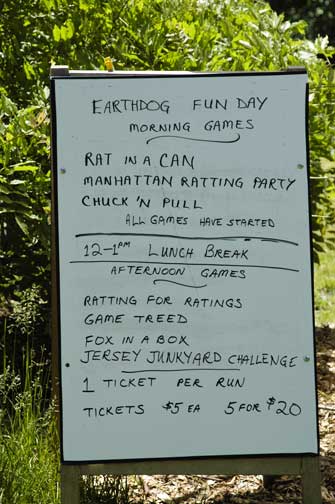 EARTHDOG FUN DAY
MORNING GAMES
RAT IN A CAN
MANHATTAN RATTING PARTY
CHUCK 'N PULL
ALL GAMES HAVE STARTED
12-1PM LUNCH BREAK
AFTERNOON GAMES
RATTING FOR RATINGS
GAME TREED
FOX IN A BOX
JERSEY JUNKYARD CHALLENGE
1 TICKET PER RUN
TICKETS $5 EA 5 FOR $20